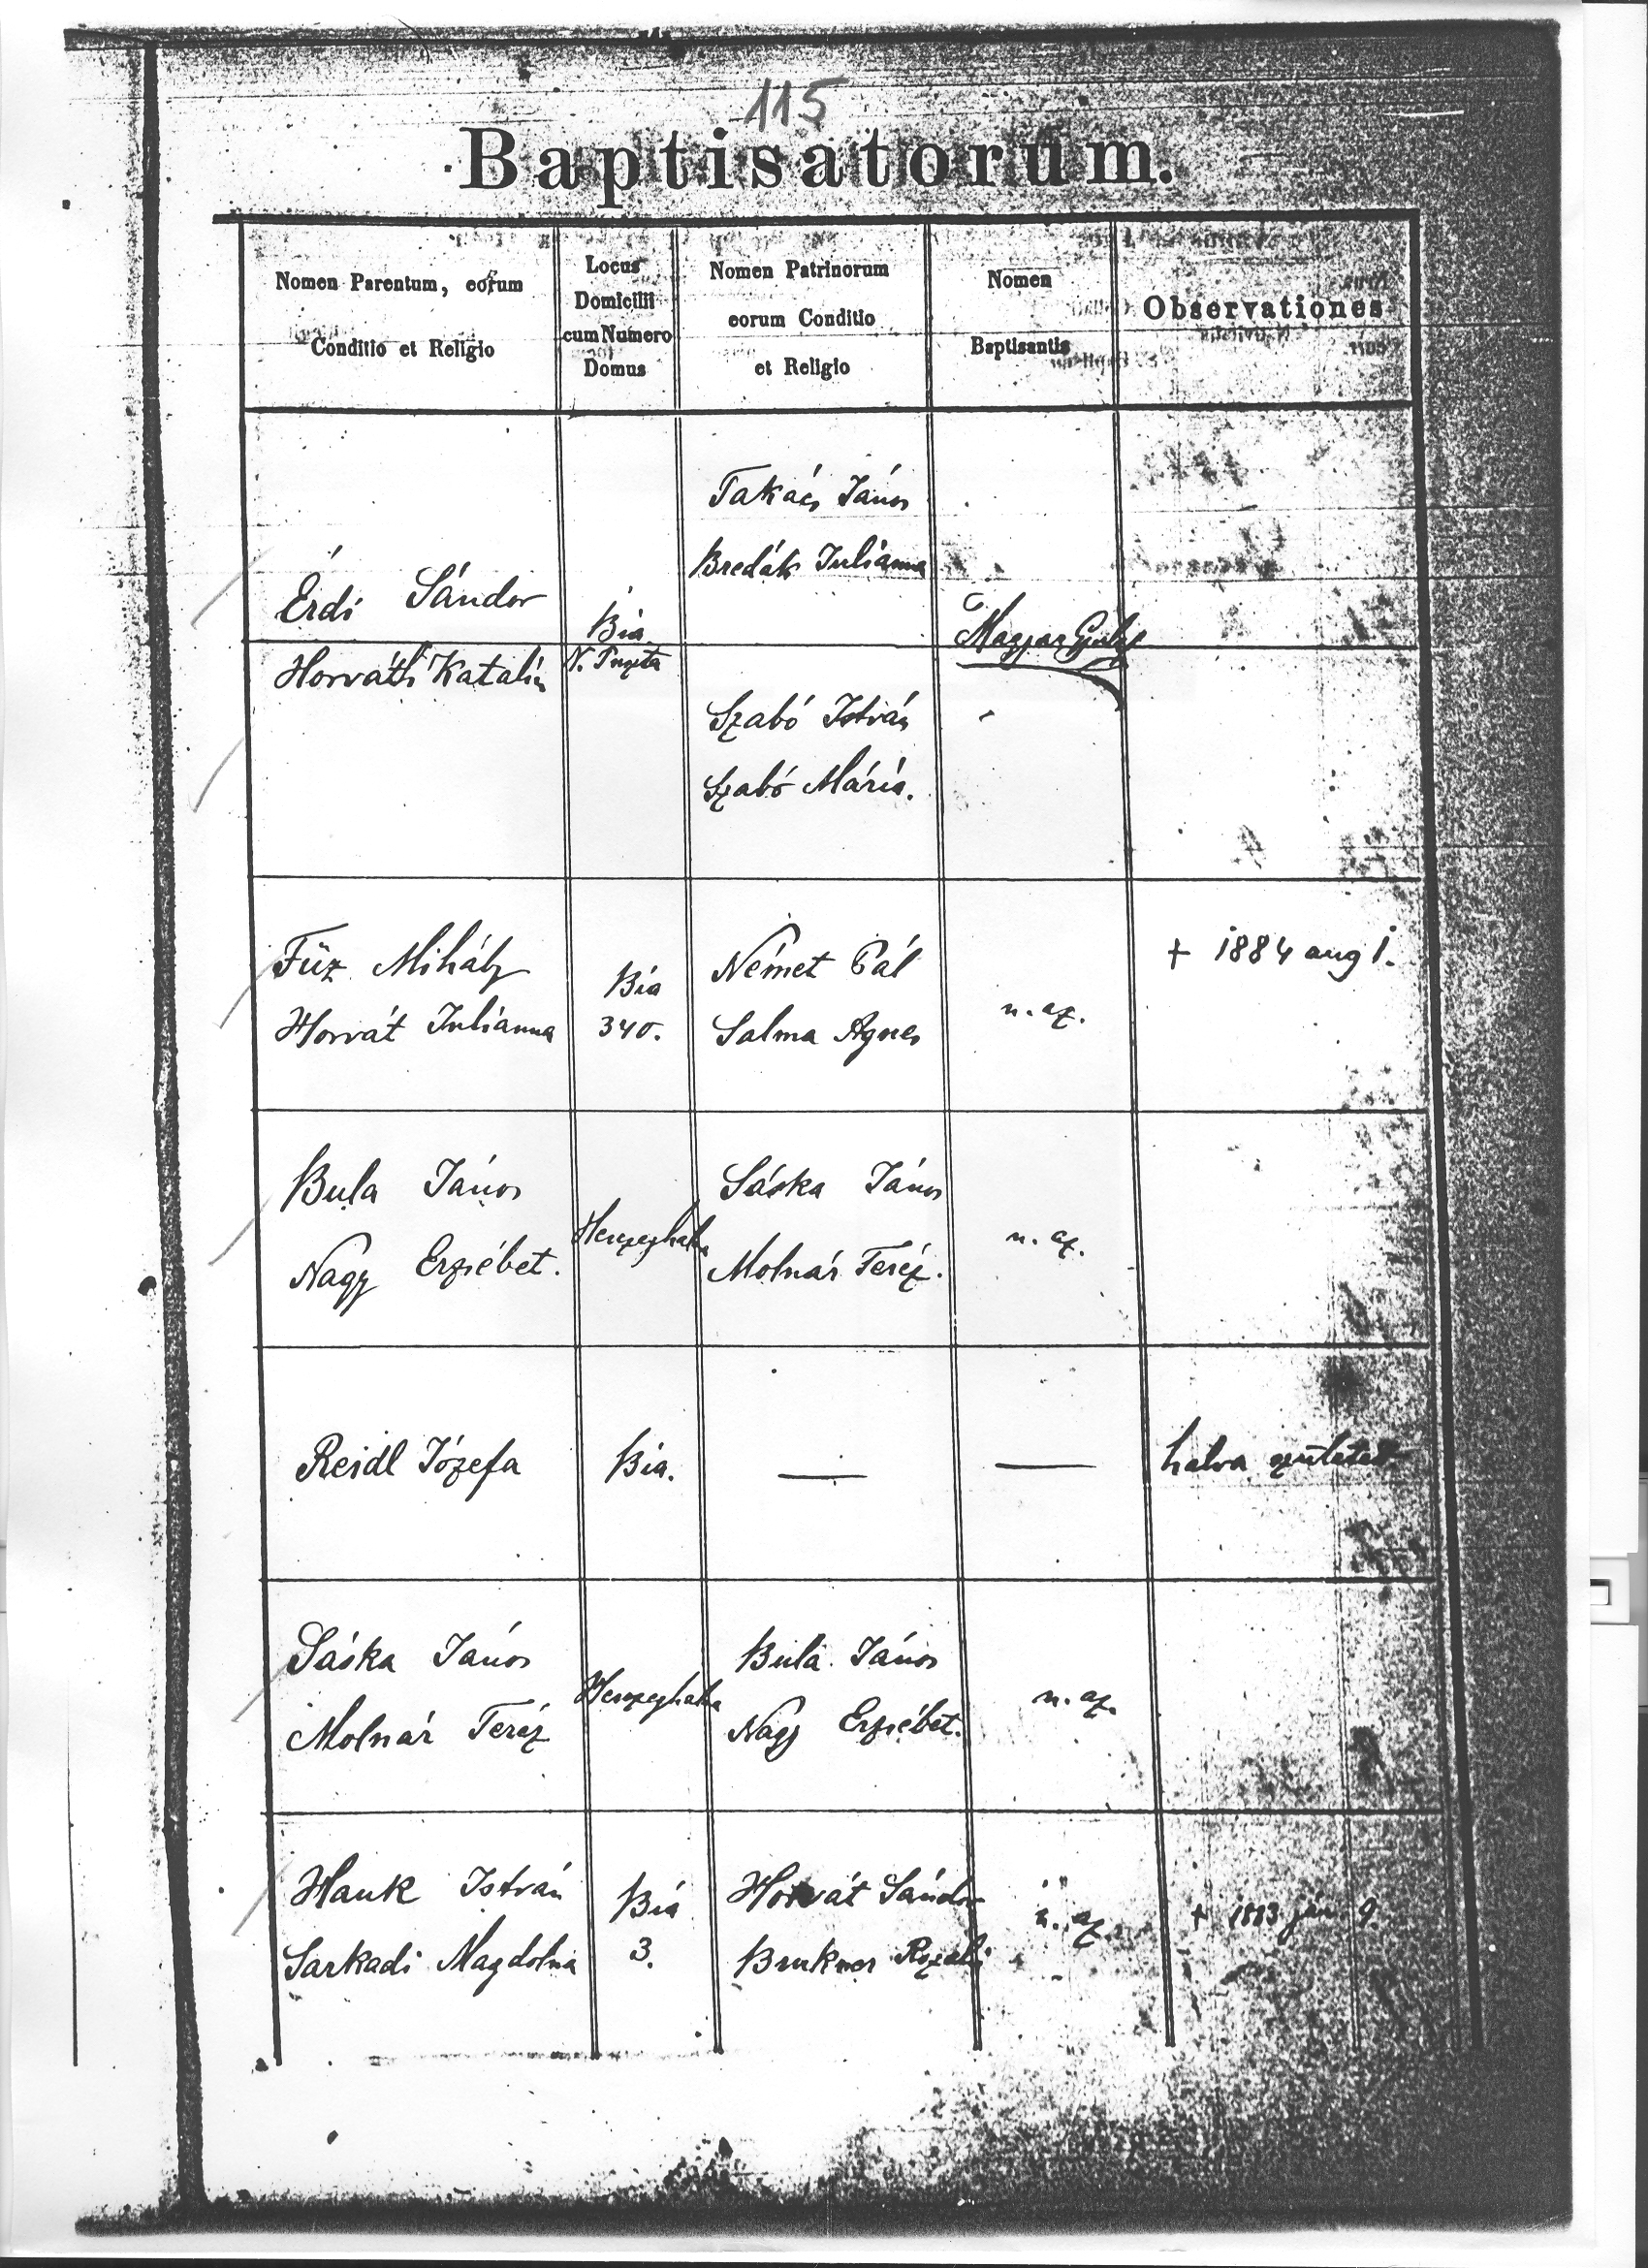 115
Baptisatorum.
Nomen Parentum, eorum
Conditio et Religio
Locus
Domicilii
cum Numero
Domus
Nomen Patrinorum
eorum Conditio
et Religio
Nomen
Baptisantis
Observationes
Érdi Sándor
Horváth Katalin
Bia
N. Puszta
Takács János
Bredák Julianna
Magyar Gyula
Szabó István
Szabó Mária.
Füz Mihály
Horvát Julianna
Bia
340.
Német Pál
Salma Agnes
u. az.
+ 1884 aug 1.
Bula János
Nagy Erzsébet.
Herczeghalm
Sáska János
Molnár Teréz.
u. az.
Reidl Józefa
Bia.
—
—
halva született
Sáska János
Molnár Teréz
Herczeghalm
Bula János
Nagy Erzsébet.
u. az.
Hauk István
Sarkadi Magdolna
Bia
3.
Horvát Sándor
Brukner Rozali
u. az.
+ 1883 ján 9.